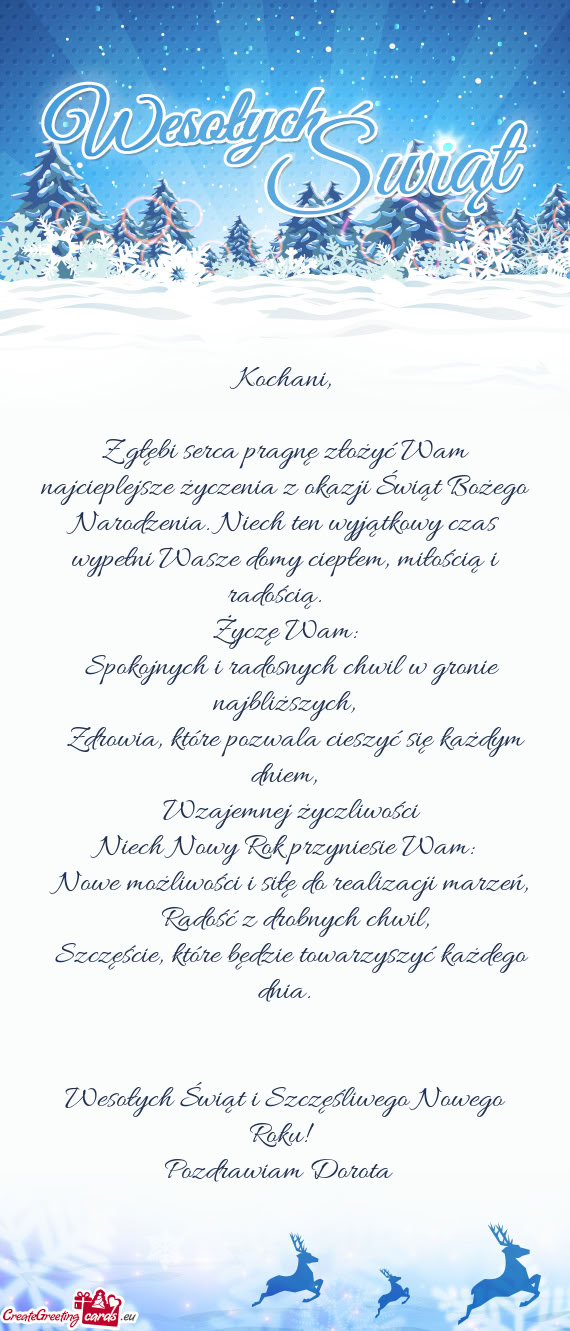 Wesołych
Świąt
Kochani,
Z głębi serca pragnę złożyć Wam
najcieplejsze życzenia z okazji Świąt Bożego
Narodzenia. Niech ten wyjątkowy czas
wypełni Wasze domy ciepłem, miłością i
radością.
Życzę Wam:
Spokojnych i radosnych chwil w gronie
najbliższych,
Zdrowia, które pozwala cieszyć się każdym
dniem,
Wzajemnej życzliwości
Niech Nowy Rok przyniesie Wam:
Nowe możliwości i siłę do realizacji marzeń,
Radość z drobnych chwil,
Szczęście, które będzie towarzyszyć każdego
dnia.
Wesołych Świąt i Szczęśliwego Nowego
Roku!
Pozdrawiam Dorota
CreateGreeting cards .eu